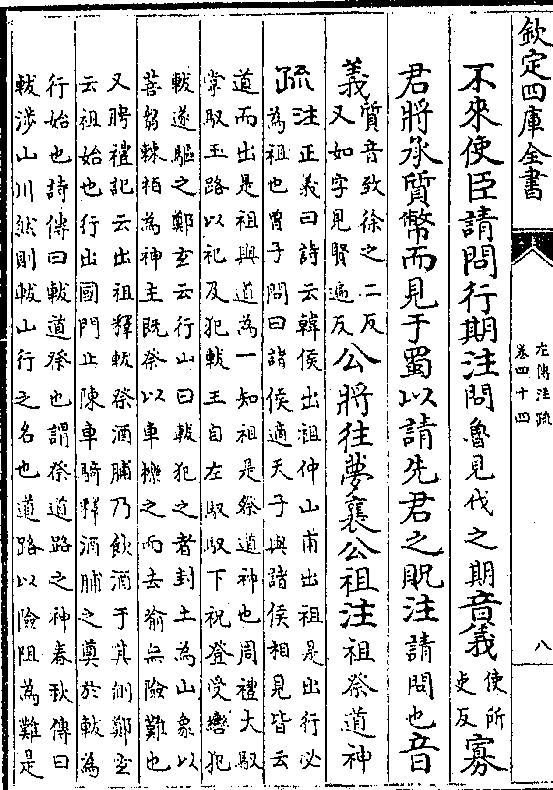 欽定四庫全書
左傳注疏
卷四十四
八
不來使臣請問行期注問魯見伐之期音義使所
吏反寡
君將承質幣而見于蜀以請先君之貺注請問也音
義質音致徐之二反
又如字見賢遍反公將往夢襄公祖注祖祭道神
疏注正義曰詩云韓侯出祖仲山甫出祖是出行必
為祖也曾子問曰諸侯適天子與諸侯相見皆云
道而出是祖與道為一知祖是祭道神也周禮大馭
掌馭玉路以祀及犯軷王自左馭馭下祝登受轡犯
軷遂驅之鄭𤣥云行山曰軷犯之者封土為山象以
菩芻棘柏為神主既祭以車轢之而去喻無險難也
又聘禮記云出祖釋軷祭酒脯乃飲酒于其側鄭𤣥
云祖始也行出國門止陳車騎釋酒脯之奠於軷為
行始也詩傳曰軷道祭也謂祭道路之神春秋傳曰
軷涉山川然則軷山行之名也道路以險阻為難是